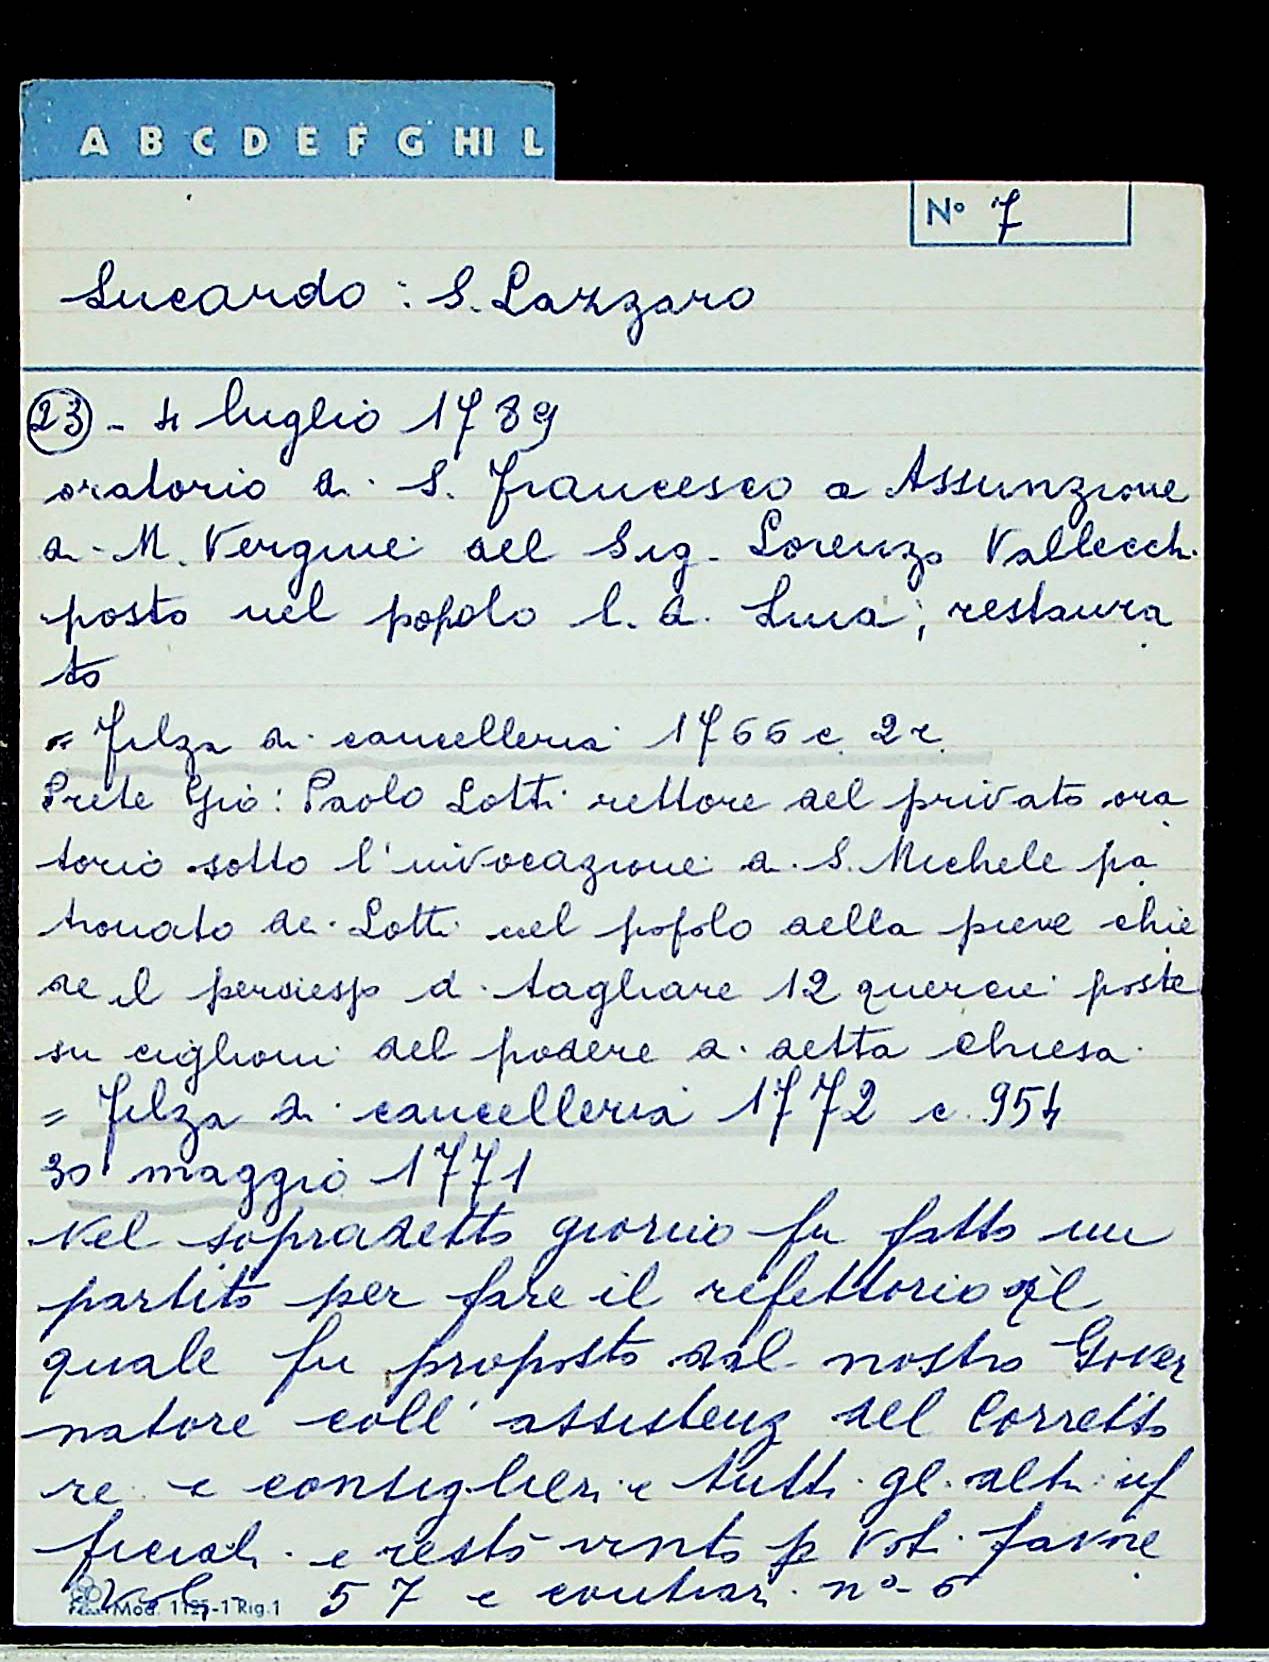 A B C D E F G HI L
N° 7
Lucardo : S. Lazzaro
23 - 4 luglio 1789
oratorio di S. Francesco e Assunzione
di M. Vergine del Sig. Lorenzo Vallecchi
posto nel popolo l. d. Luia ; restaura
to
= Filza di cancelleria 1766 c. 2r.
Prete Gio: Paolo Lotti rettore del privato ora
torio sotto l'invocazione di S. Michele pa
tronato dei Lotti nel popolo della pieve chie
de il permesso di tagliare 12 querci poste
su ciglioni del podere di detta chiesa.
= Filza di cancelleria 1772 c. 954
30 maggio 1771
Nel sopradetto giorno fu fatto un
partito per fare il refettorio il
quale fu proposto dal nostro Gover
natore coll' assistenz del Corretto
re e consiglieri e tutti gl. altri uf
ficiali e restò vinto p voti favore
voli 57 e contrari n° 6
Mod. 1125-1 Rig.1